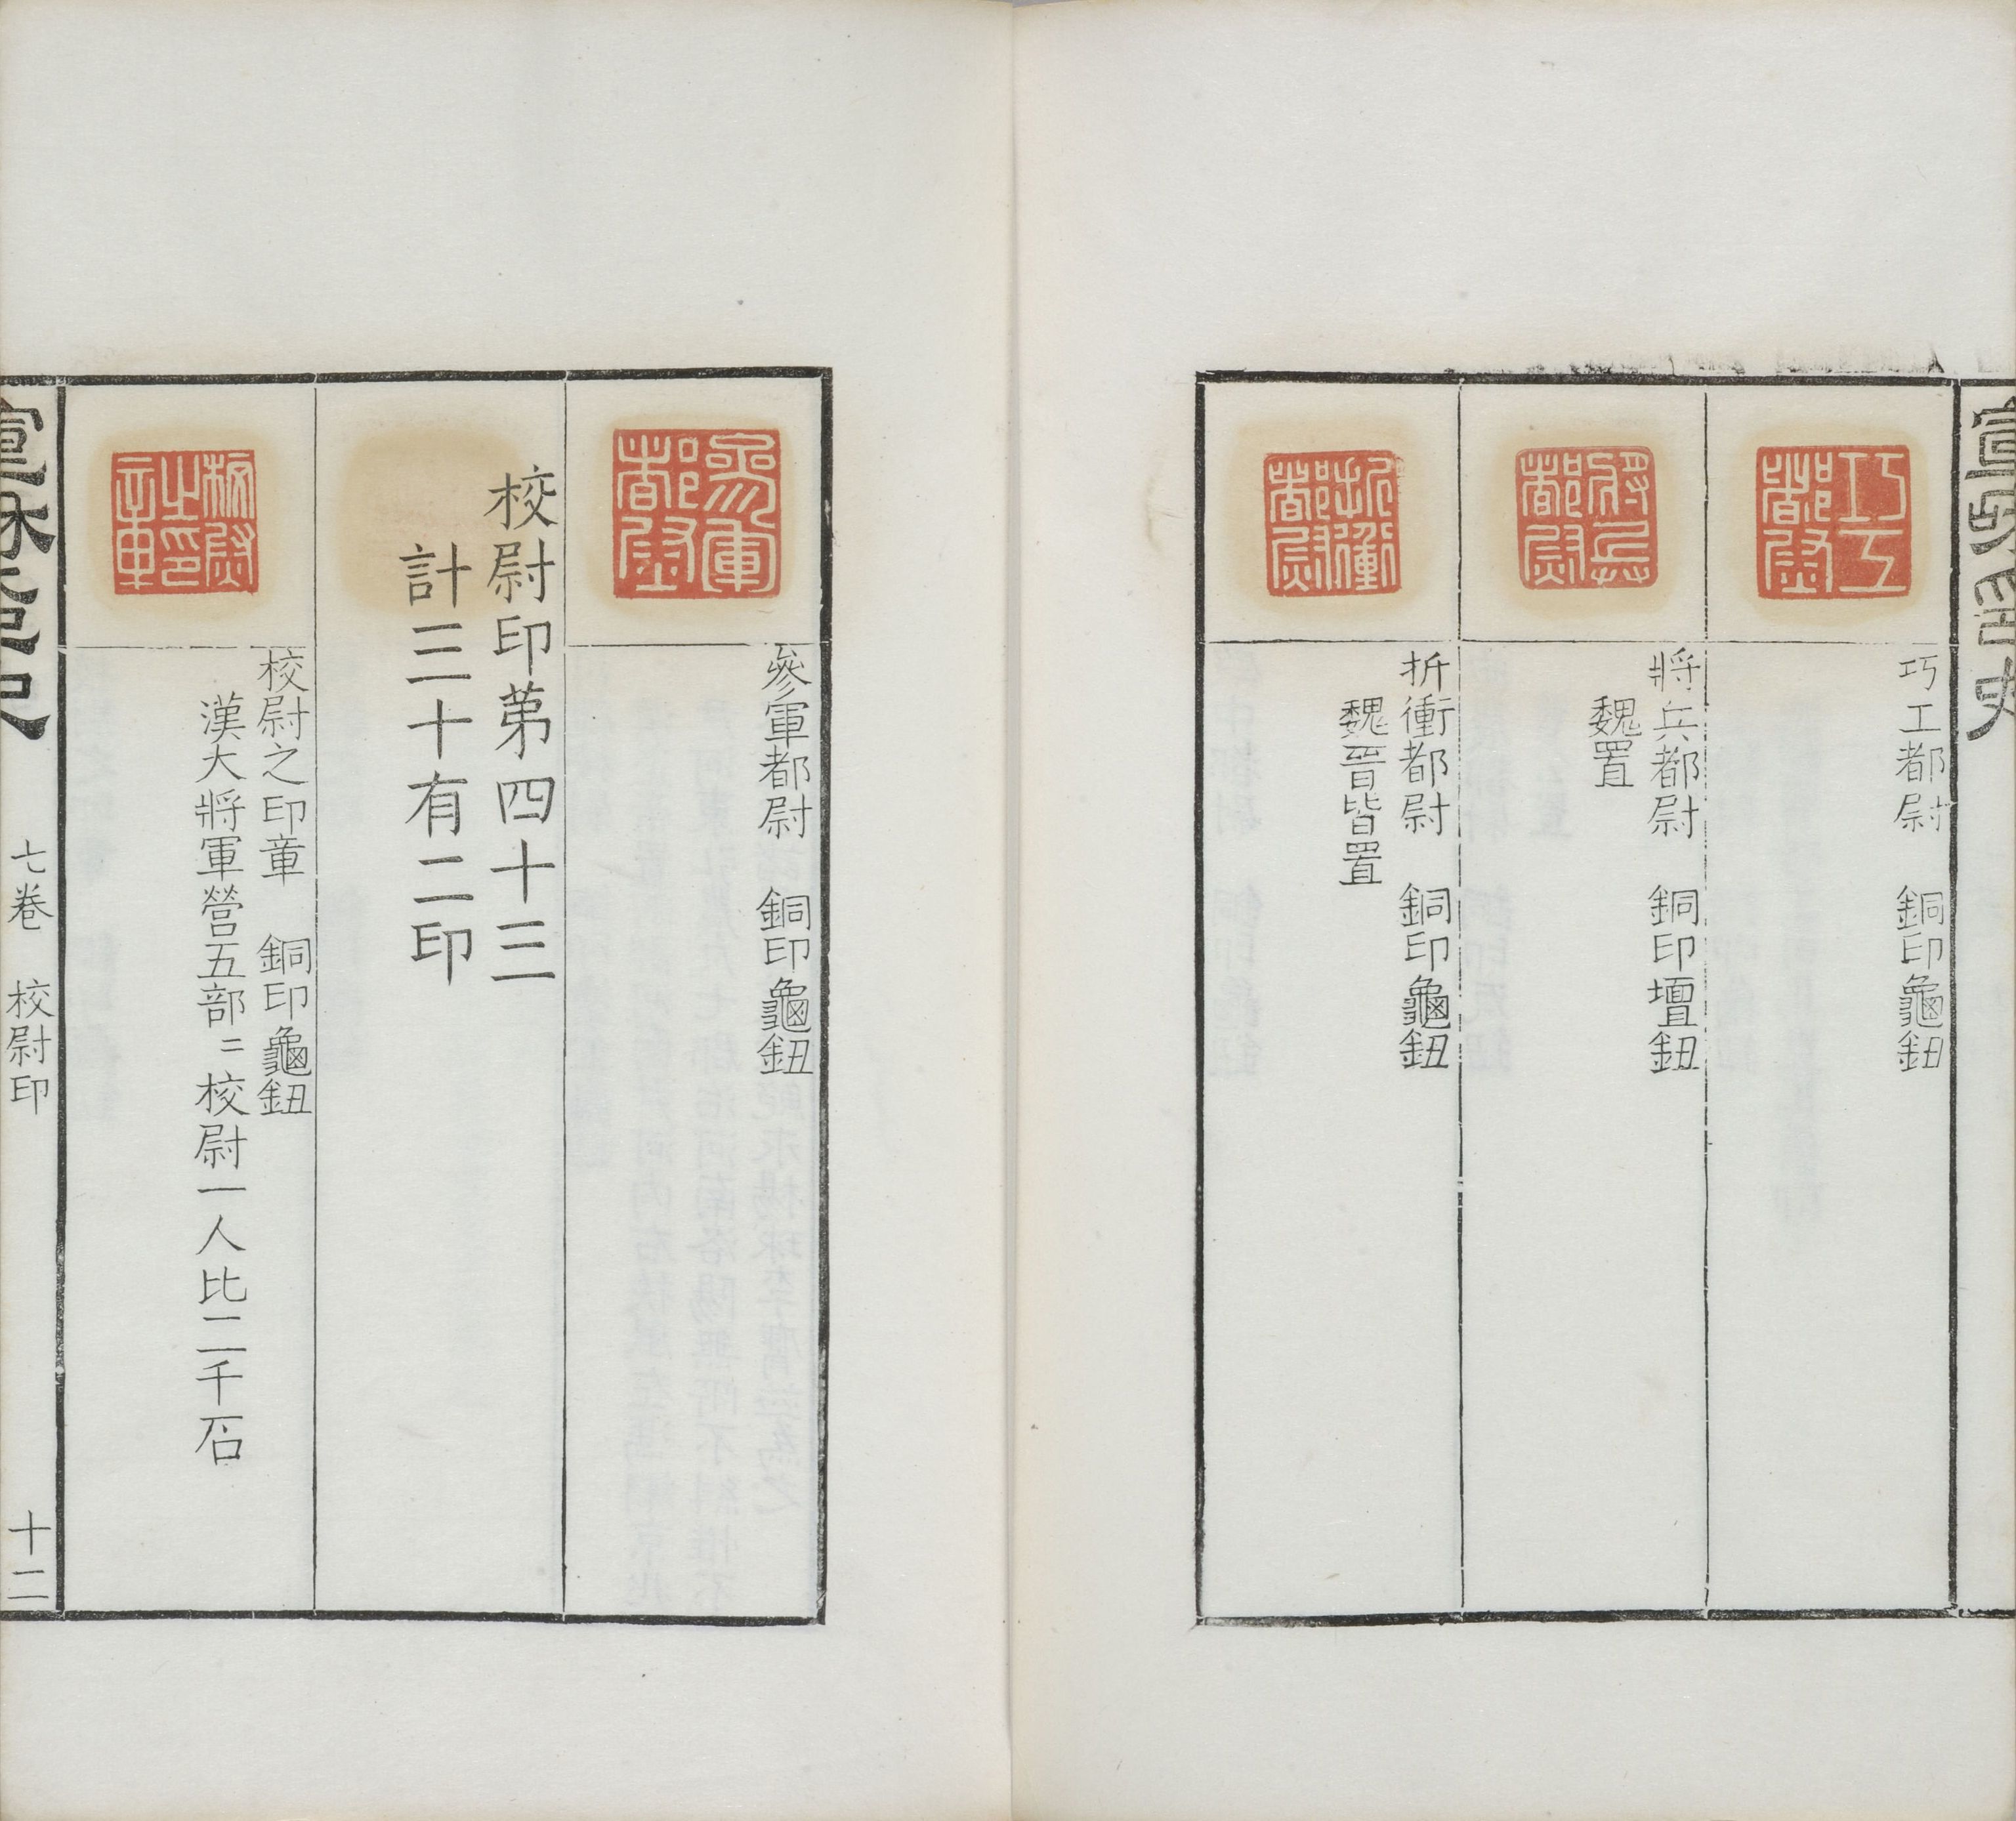 宣和印史
巧工都尉
巧工都尉 銅印龜鈕
將兵都尉
將兵都尉 銅印壇鈕
魏置
折衝都尉
折衝都尉 銅印龜鈕
魏晉皆置
參軍都尉
參軍都尉 銅印龜鈕
校尉印苐四十三
計三十有二印
校尉之印章
校尉之印章 銅印龜鈕
漢大將軍營五部〻校尉一人比二千石
宣和印史 七卷 校尉印 十二